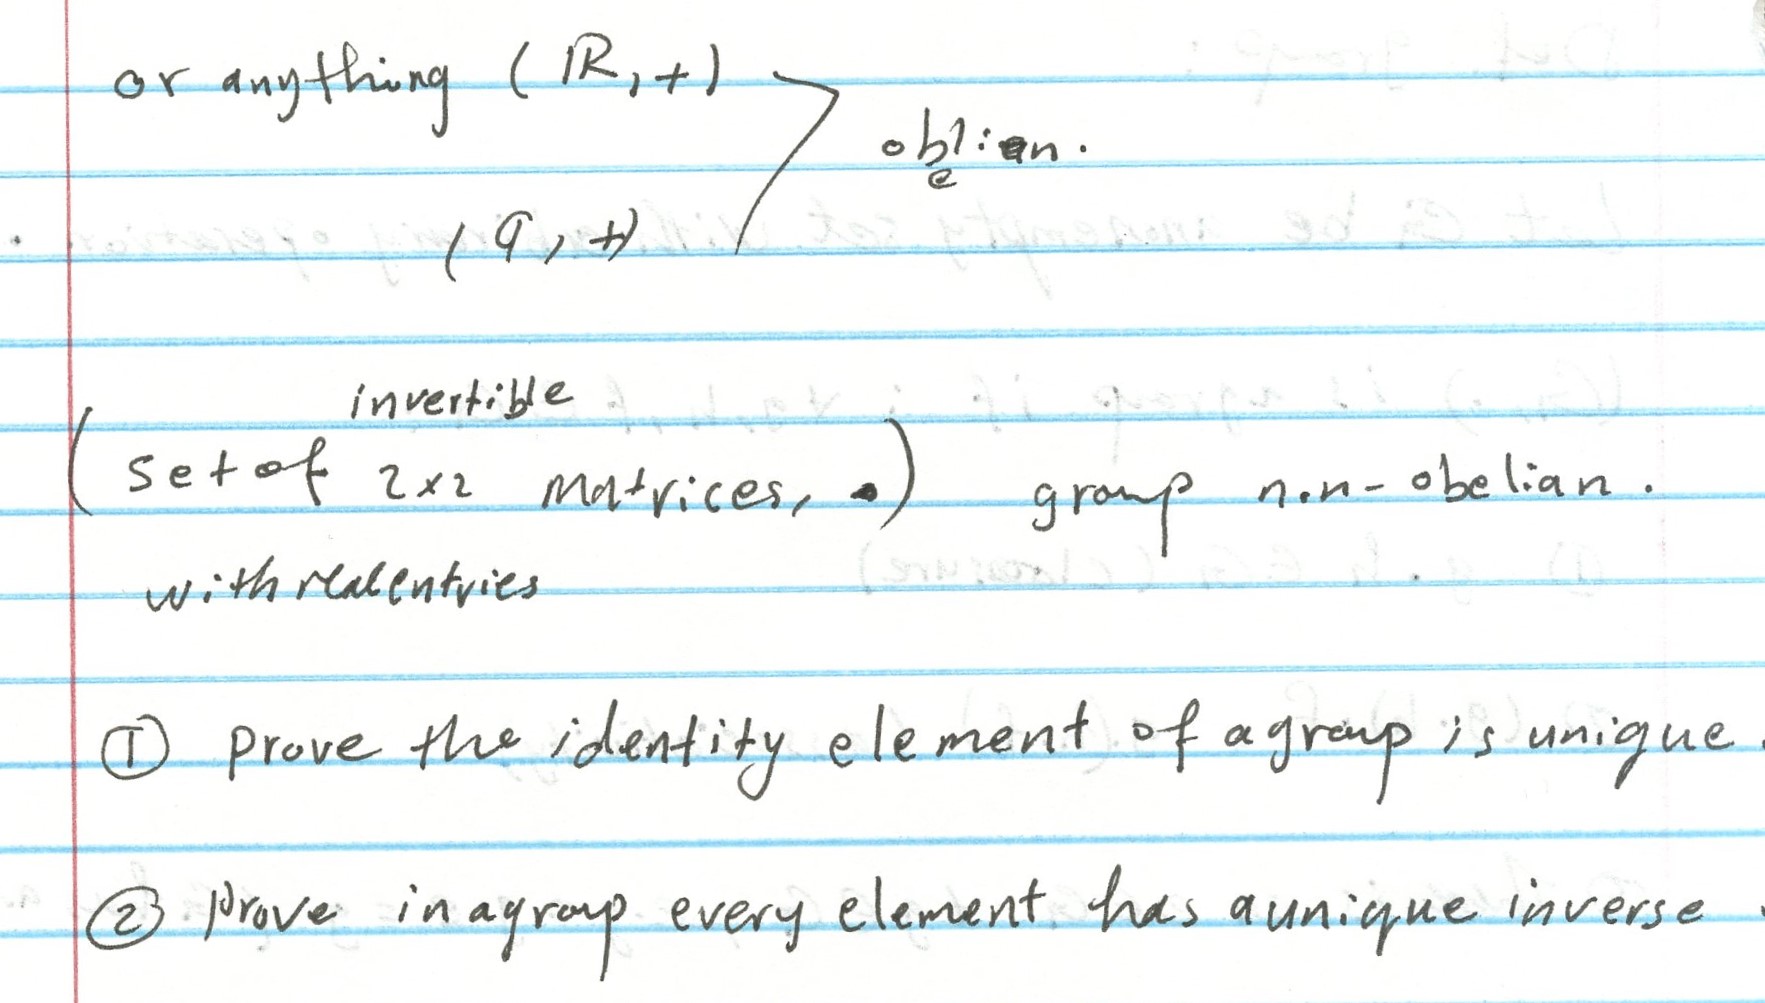 or anything (ℝ, +)
oblian.
e
(q, +)
invertible
(set of 2x2 matrices, •) group non-obelian.
with real entries
① prove the identity element of a group is unique.
② prove in a group every element has a unique inverse.